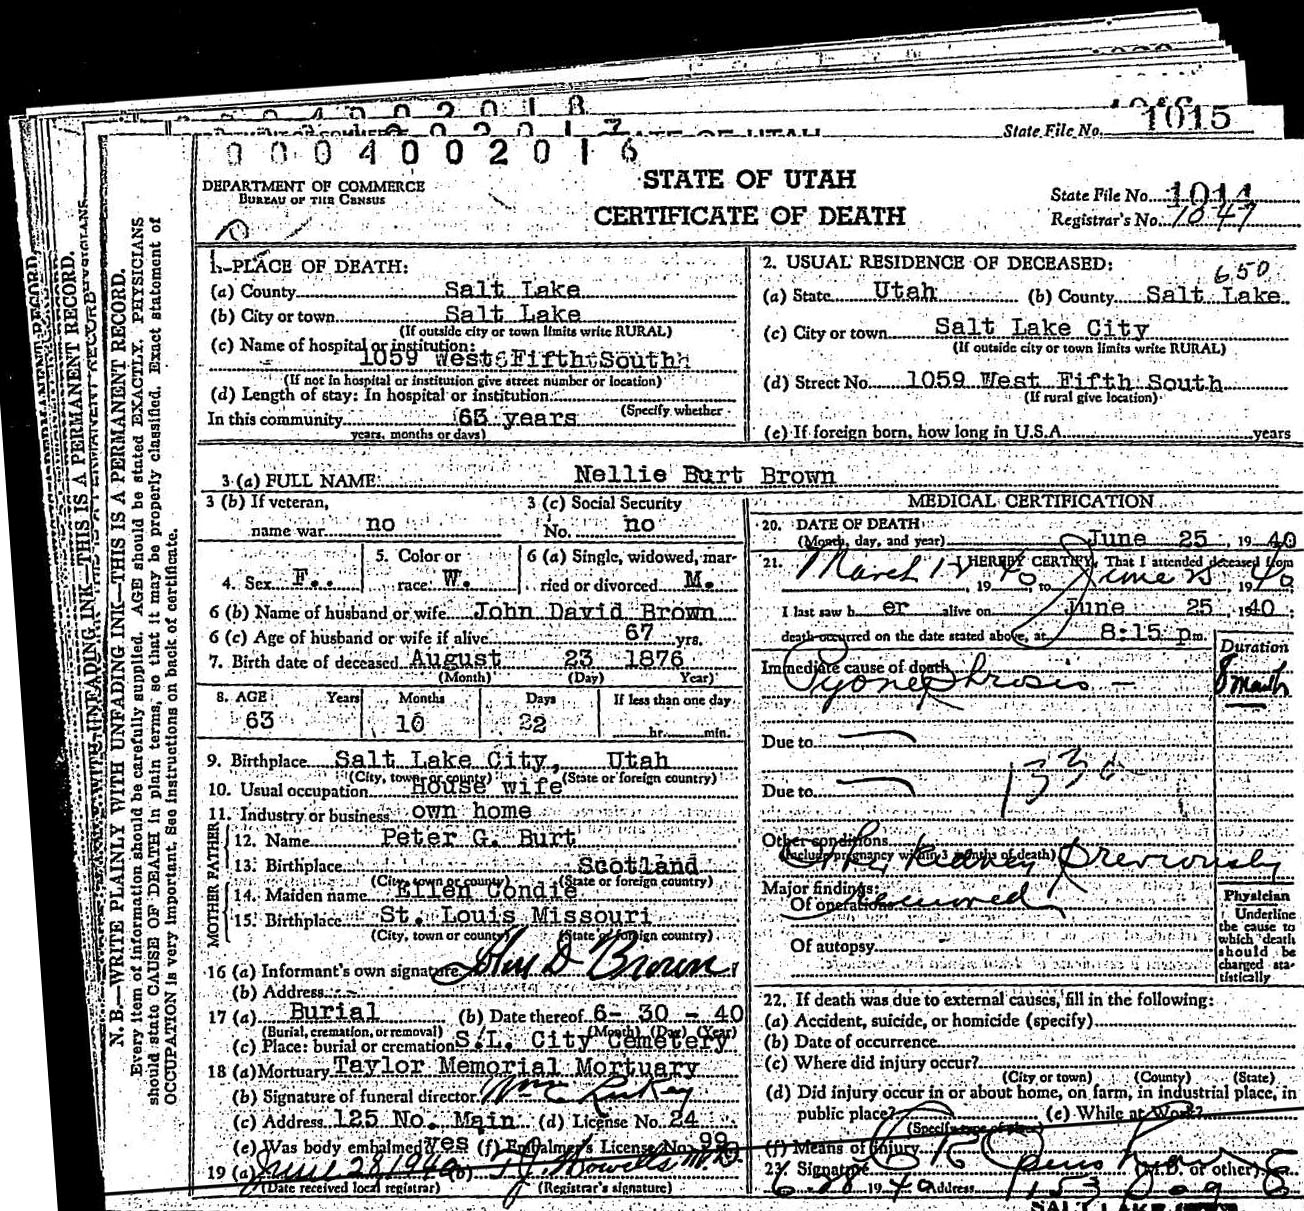 0 0 0 4 0 0 2 0 1 8
State File No. 1015
0 0 0 4 0 0 2 0 1 6
DEPARTMENT OF COMMERCE
BUREAU OF THE CENSUS
STATE OF UTAH
CERTIFICATE OF DEATH
State File No. 1014
Registrar's No. 1047
N. B.—WRITE PLAINLY WITH UNFADING INK—THIS IS A PERMANENT RECORD.
Every item of information should be carefully supplied. AGE should be stated EXACTLY. PHYSICIANS
should state CAUSE OF DEATH in plain terms, so that it may be properly classified. Exact statement of
OCCUPATION is very important. See instructions on back of certificate.
1. PLACE OF DEATH:
(a) County Salt Lake
(b) City or town Salt Lake
(If outside city or town limits write RURAL)
(c) Name of hospital or institution:
1059 West Fifth South
(If not in hospital or institution give street number or location)
(d) Length of stay: In hospital or institution
(Specify whether
In this community 63 years
years, months or days)
2. USUAL RESIDENCE OF DECEASED:
650
(a) State Utah (b) County Salt Lake
(c) City or town Salt Lake City
(If outside city or town limits write RURAL)
(d) Street No. 1059 West Fifth South
(If rural give location)
(e) If foreign born, how long in U.S.A. years
3 (a) FULL NAME: Nellie Burt Brown
3 (b) If veteran,
name war no
3 (c) Social Security
No. no
4. Sex F.
5. Color or
race W.
6 (a) Single, widowed, mar-
ried or divorced M.
6 (b) Name of husband or wife John David Brown
6 (c) Age of husband or wife if alive 67 yrs.
7. Birth date of deceased August 23 1876
(Month) (Day) Year)
8. AGE: Years Months Days If less than one day
63 10 22 hr. min.
9. Birthplace Salt Lake City, Utah
(City, town or county) (State or foreign country)
10. Usual occupation House wife
11. Industry or business own home
FATHER
12. Name Peter G. Burt
13. Birthplace Scotland
(City, town or county) (State or foreign country)
MOTHER
14. Maiden name Ellen Condie
15. Birthplace St. Louis Missouri
(City, town or county) (State or foreign country)
16 (a) Informant's own signature John D Brown
(b) Address
17 (a) Burial (b) Date thereof 6- 30 - 40
(Burial, cremation, or removal) (Month) (Day) (Year)
(c) Place: burial or cremation S.L. City Cemetery
18 (a) Mortuary Taylor Memorial Mortuary
(b) Signature of funeral director
(c) Address 125 No. Main (d) License No. 24
(e) Was body embalmed yes (f) Embalmer's License No. 99
19 (a) June 28 1940 (b) T.J. Howells M.D.
(Date received local registrar) (Registrar's signature)
MEDICAL CERTIFICATION
20. DATE OF DEATH
(Month, day, and year) June 25, 1940
21. I HEREBY CERTIFY, That I attended deceased from
March 12, 1940, to June 25, 1940
I last saw her alive on June 25, 1940;
death occurred on the date stated above, at 8:15 pm.
Duration
Immediate cause of death
Pyonephrosis —
8 month
Due to
Due to
133
Other conditions
(Include pregnancy within 3 months of death)
Other kidney previously
Major findings:
Of operations removed
Of autopsy
Physician
Underline
the cause to
which death
should be
charged sta-
tistically
22. If death was due to external causes, fill in the following:
(a) Accident, suicide, or homicide (specify)
(b) Date of occurrence
(c) Where did injury occur?
(City or town) (County) (State)
(d) Did injury occur in or about home, on farm, in industrial place, in
public place? (e) While at Work?
(Specify type of place)
(f) Means of injury
23. Signature (M.D. or other)
6-28 1940 Address 1153
SALT LAKE